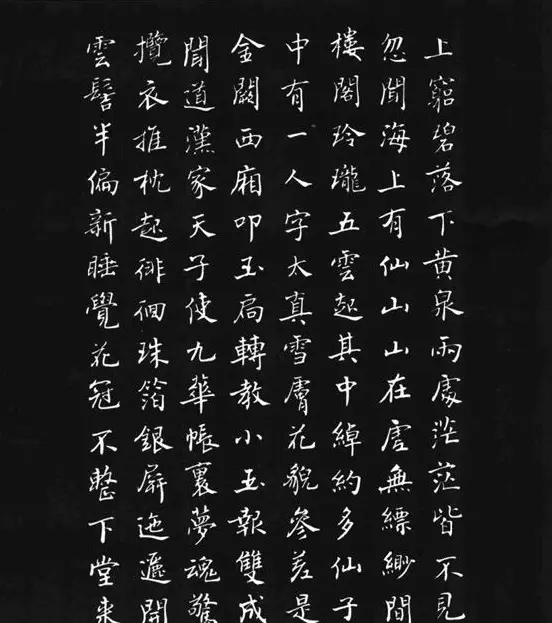 上窮碧落下黃泉兩處茫茫皆不見
忽聞海上有仙山山在虛無縹緲間
樓閣玲瓏五雲起其中綽約多仙子
中有一人字太真雪膚花貌參差是
金闕西廂叩玉扃轉教小玉報雙成
聞道漢家天子使九華帳裏夢魂驚
攬衣推枕起徘徊珠箔銀屏迤邐開
雲髻半偏新睡覺花冠不整下堂來